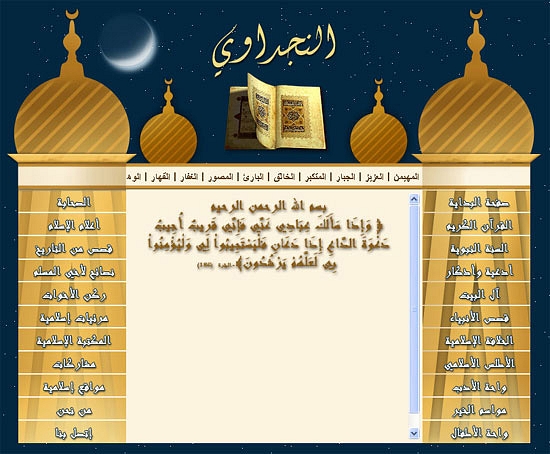 النجداوي
المهيمن | العزيز | الجبار | المتكبر | الخالق | البارئ | المصور | الغفار | القهار | الوه
بسم الله الرحمن الرحيم
﴿ وَإِذَا سَأَلَكَ عِبَادِي عَنِّي فَإِنِّي قَرِيبٌ أُجِيبُ
دَعْوَةَ الدَّاعِ إِذَا دَعَانِ فَلْيَسْتَجِيبُواْ لِي وَلْيُؤْمِنُواْ
بِي لَعَلَّهُمْ يَرْشُدُونَ﴾
صفحة البداية
القرآن الكريم
السنة النبوية
أدعية وأذكار
آل البيت
قصص الأنبياء
الخلافة الإسلامية
الأطلس الأسلامي
واحة الأدب
مواسم الخير
واحة الأطفال
الصحابة
أعلام الإسلام
قصص من التاريخ
نصائح لأخي المسلم
ركن الأخوات
مرئيات إسلامية
المكتبة الإسلامية
مشاركات
مواقع إسلامية
من نحن
إتصل بنا